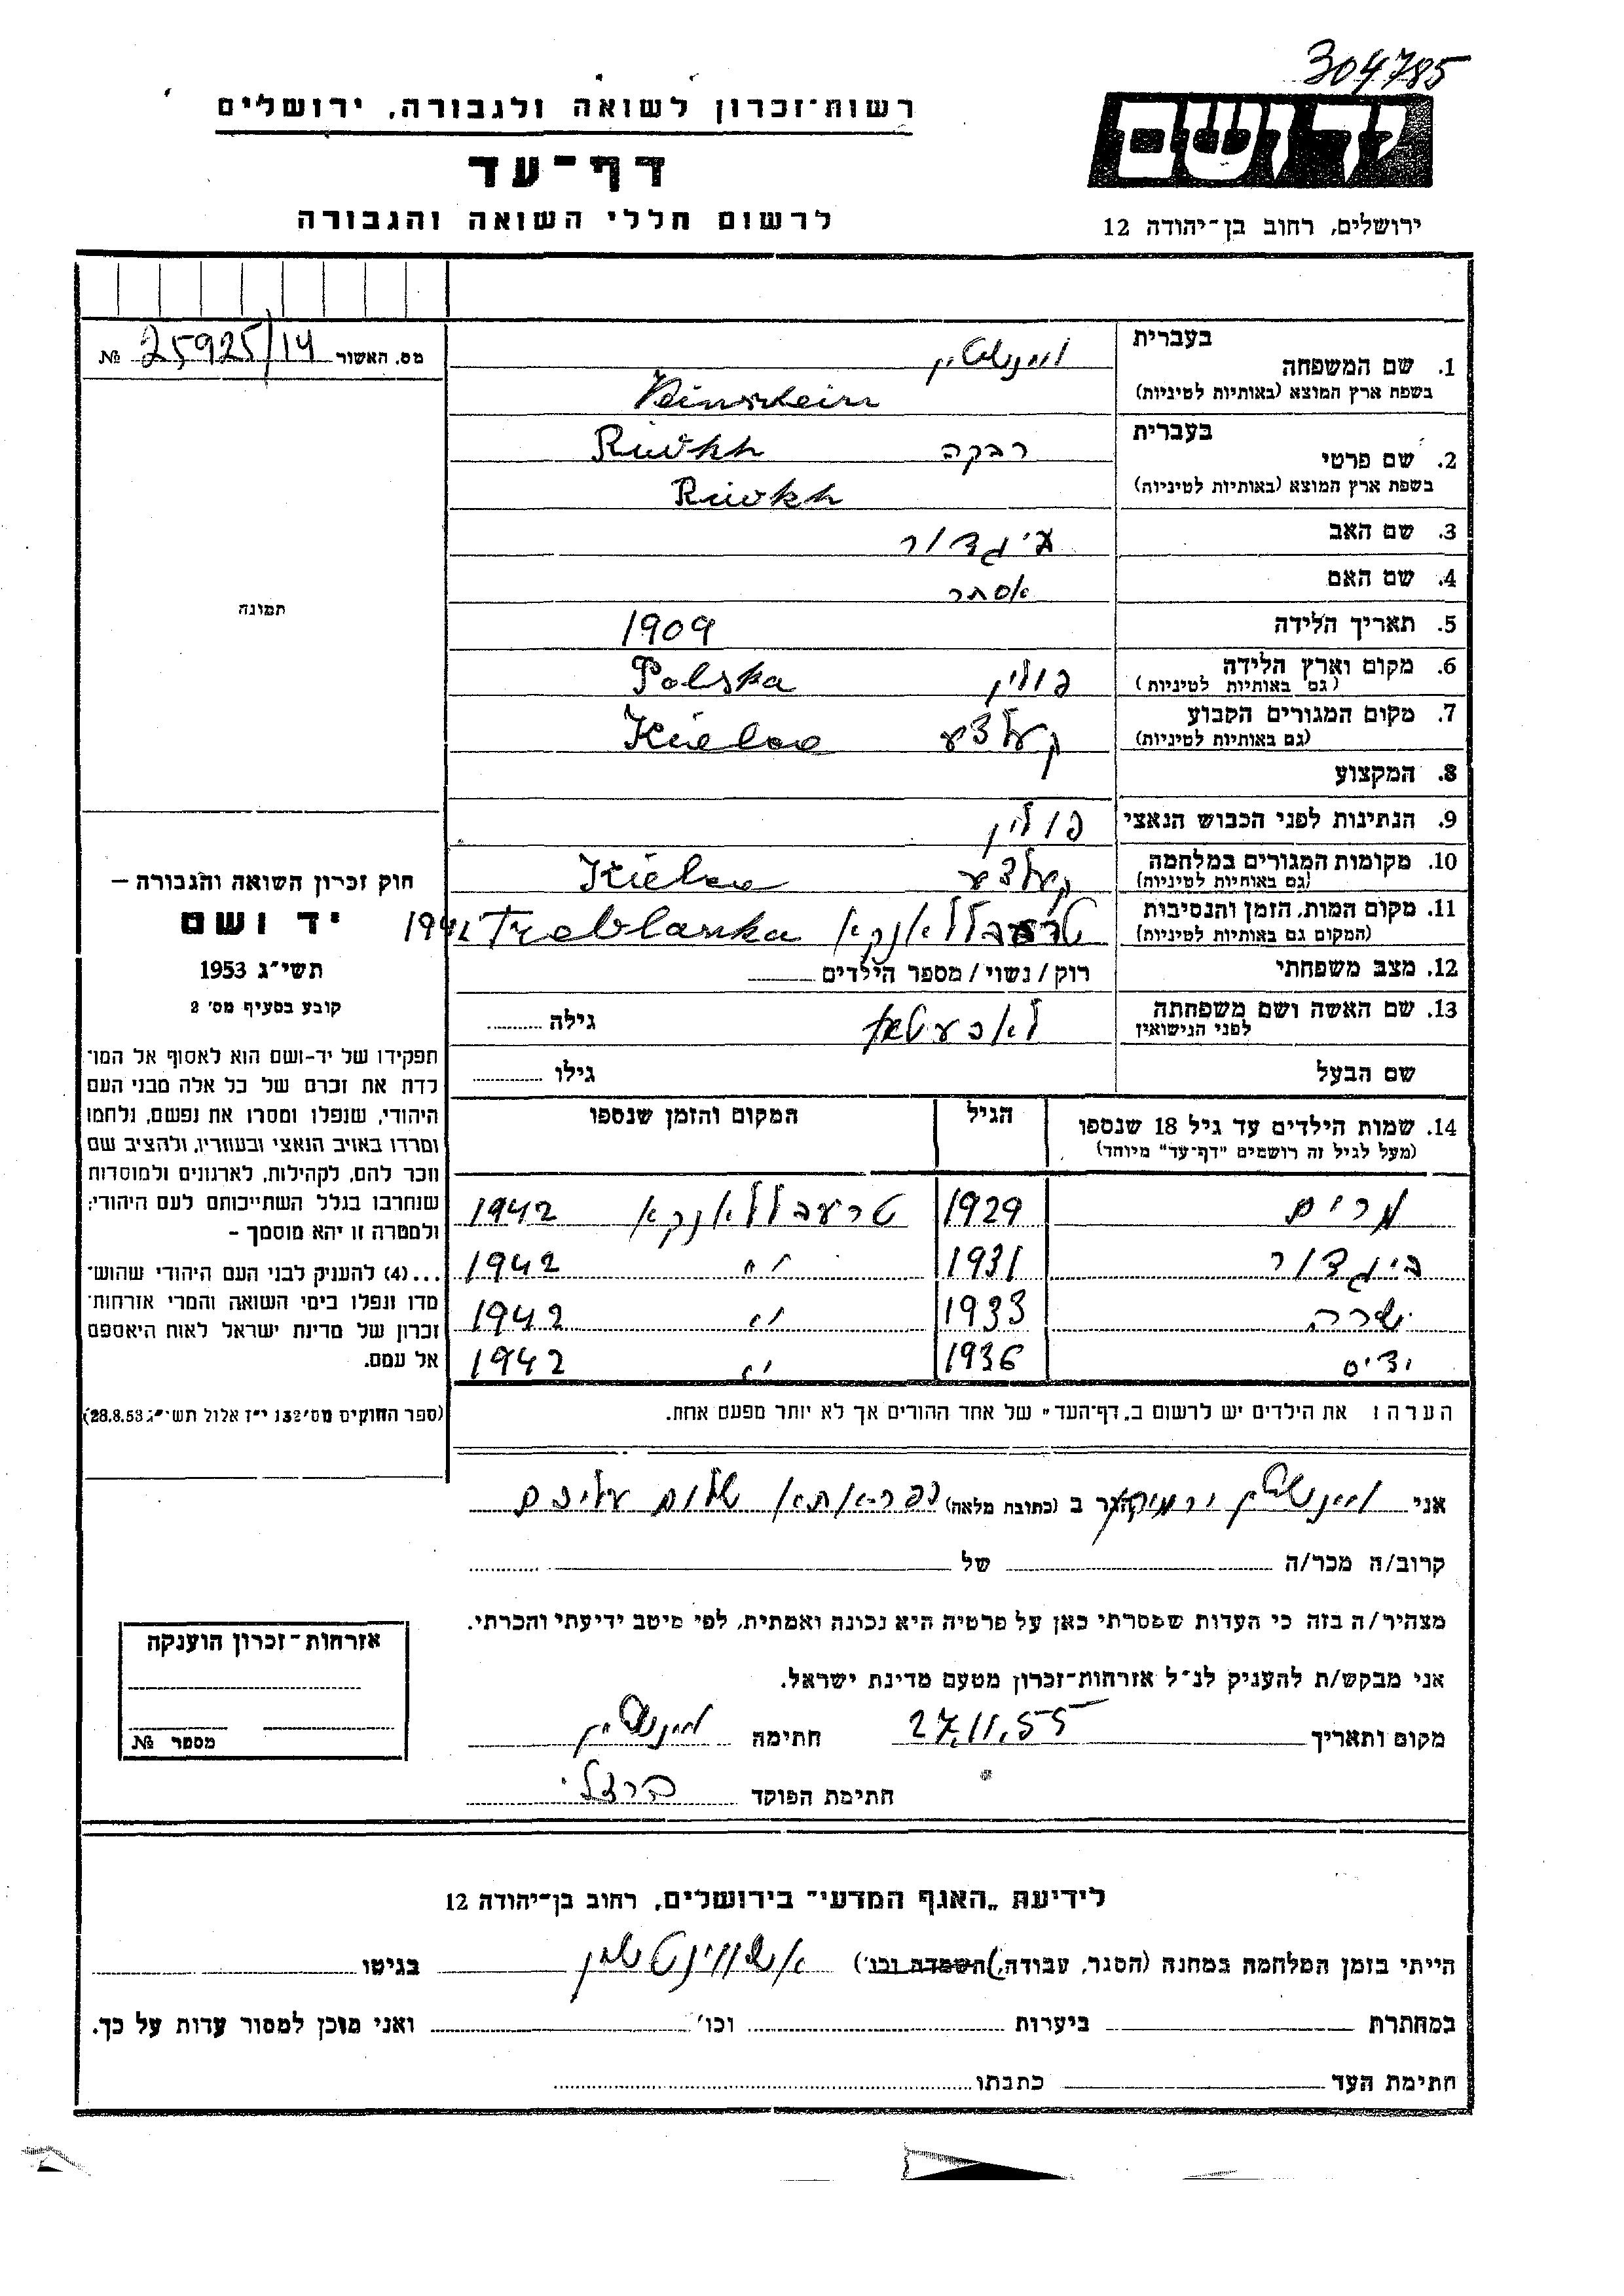 304785
יד ושם
רשות-זכרון לשואה ולגבורה, ירושלים
דף-עד
לרשום חללי השואה והגבורה
ירושלים, רחוב בן-יהודה 12
מס. האשור 25925/14 №
בעברית
1. שם המשפחה
בשפת ארץ המוצא (באותיות לטיניות)
בעברית
2. שם פרטי רבקה Riwkh
בשפת ארץ המוצא (באותיות לטיניות) Riwkh
3. שם האב
4. שם האם אסתר
5. תאריך הלידה 1909
6. מקום וארץ הלידה פולין Polska
(גם באותיות לטיניות)
7. מקום המגורים הקבוע קעלצע Kielce
(גם באותיות לטיניות)
8. המקצוע
9. הנתינות לפני הכבוש הנאצי פולין
10. מקומות המגורים במלחמה קעלצע Kielce
(גם באותיות לטיניות)
11. מקום המות, הזמן והנסיבות טרעבללאנקא Treblanka 1942
(המקום גם באותיות לטיניות)
12. מצב משפחתי רוק / נשוי / מספר הילדים
13. שם האשה ושם משפחתה גילה
לפני הנישואין
שם הבעל גילו
14. שמות הילדים עד גיל 18 שנספו הגיל המקום והזמן שנספו
(מעל לגיל זה רושמים "דף-עד" מיוחד)
מרים 1929 טרעבללאנקא 1942
1931 " 1942
שרה 1933 " 1942
1936 " 1942
הערה: את הילדים יש לרשום ב„דף-העד" של אחד ההורים אך לא יותר מפעם אחת.
תמונה
חוק זכרון השואה והגבורה –
יד ושם
תשי"ג 1953
קובע בסעיף מס' 2
תפקידו של יד-ושם הוא לאסוף אל המו־
לדת את זכרם של כל אלה מבני העם
היהודי, שנפלו ומסרו את נפשם, נלחמו
ומרדו באויב הנאצי ובעוזריו, ולהציב שם
וזכר להם, לקהילות, לארגונים ולמוסדות
שנחרבו בגלל השתייכותם לעם היהודי;
ולמטרה זו יהא מוסמך –
...(4) להעניק לבני העם היהודי שהוש־
מדו ונפלו בימי השואה והמרי אזרחות־
זכרון של מדינת ישראל לאות היאספם
אל עמם.
(ספר החוקים מס' 132 י"ז אלול תשי"ג 28.8.53)
אני הגר ב (כתובת מלאה) שלום עליכם
קרוב/ה מכר/ה של
מצהיר/ה בזה כי העדות שמסרתי כאן על פרטיה היא נכונה ואמתית, לפי מיטב ידיעתי והכרתי.
אני מבקש/ת להעניק לנ"ל אזרחות-זכרון מטעם מדינת ישראל.
מקום ותאריך 27.11.55 חתימה
חתימת הפוקד ברזלי
אזרחות-זכרון הוענקה
מספר №
לידיעת „האגף המדעי" בירושלים, רחוב בן-יהודה 12
הייתי בזמן המלחמה במחנה (הסגר, עבודה, השמדה וכו') בגיטו
במחתרת ביערות וכו' ואני מוכן למסור עדות על כך.
חתימת העד כתבתו